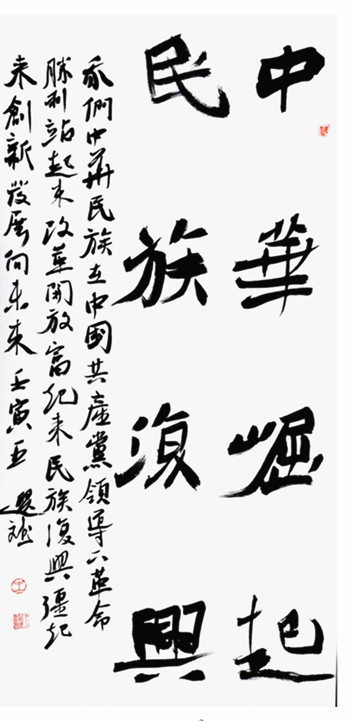 中華崛起
民族復興
我們中華民族在中國共產黨領导下革命
勝利站起来改革開放富起来民族復興彊起
来創新發展向未来壬寅